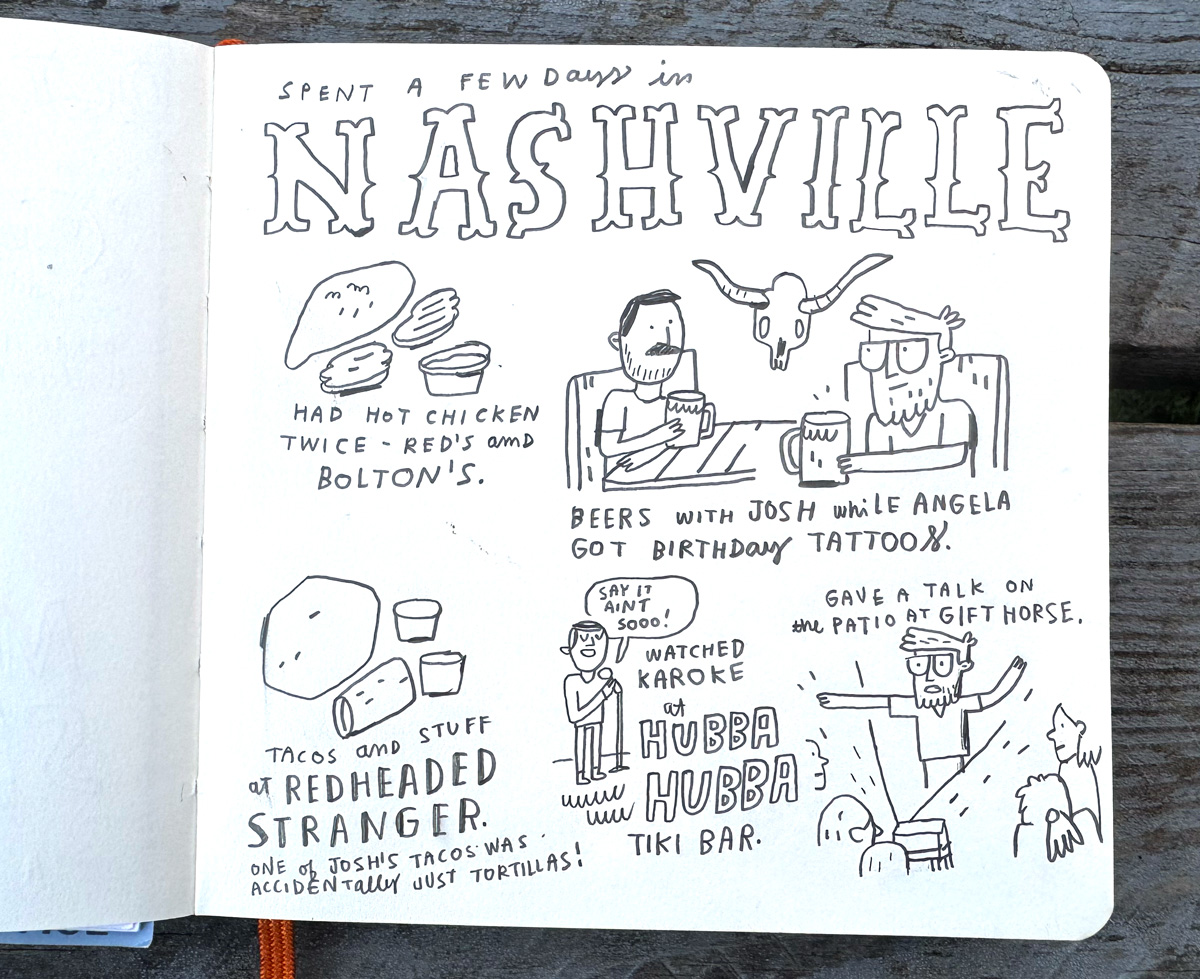 SPENT A FEW Days in
NASHVILLE
HAD HOT CHICKEN
TWICE - RED'S and
BOLTON'S.
BEERS WITH JOSH while ANGELA
GOT BIRTHDay TATTOOS.
TACOS and STUFF
at REDHEADED
STRANGER.
ONE of JOSH'S TACOS WAS
ACCIDENTally JUST TORTILLAS!
SAY IT
AINT
SOOO!
WATCHED
KAROKE
at
HUBBA
HUBBA
TIKI BAR.
GAVE A TALK ON
the PATIO AT GIFT HORSE.